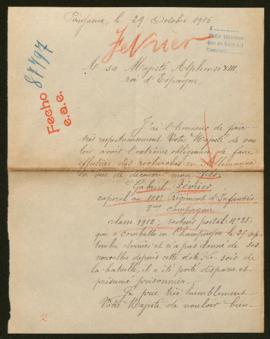 le 29 Octobre 1915
Février
87797
A sa Majesté Alphonse XIII
roi d'Espagne
Fecho
e.a.e.
J'ai l'honneur de
très respectueusement Votre Majesté de
loir avoir l'extrême obligeance de faire
effectuer des recherches en Allemagne
en vue de découvrir mon fils
Gabriel Février
caporal au Régiment d'Infanterie
Compagnie
classe 1912 secteur postal N°
qui a combattu en Champagne le 27
dernier et n'a pas donné de ses
nouvelles depuis cette date. Le soir de
la bataille, il a été porté disparu et
présumé prisonnier.
Je prie très humblement
Votre Majesté de vouloir bien